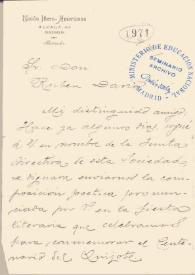 Unión Ibero-Americana
ALCALÁ, 65
MADRID
1971
MINISTERIO DE EDUCACIÓN NACIONAL
SEMINARIO
ARCHIVO
MADRID
Sr. Don
Rubén Darío
Mi distinguido amigo:
Hace ya algunos días rogué
á V. en nombre de la Junta
Directiva de esta Sociedad
se dignara enviarnos la com-
posición poética pronun-
ciada por V. en la fiesta
literaria que celebramos
para conmemorar el Cente-
nario del Quijote